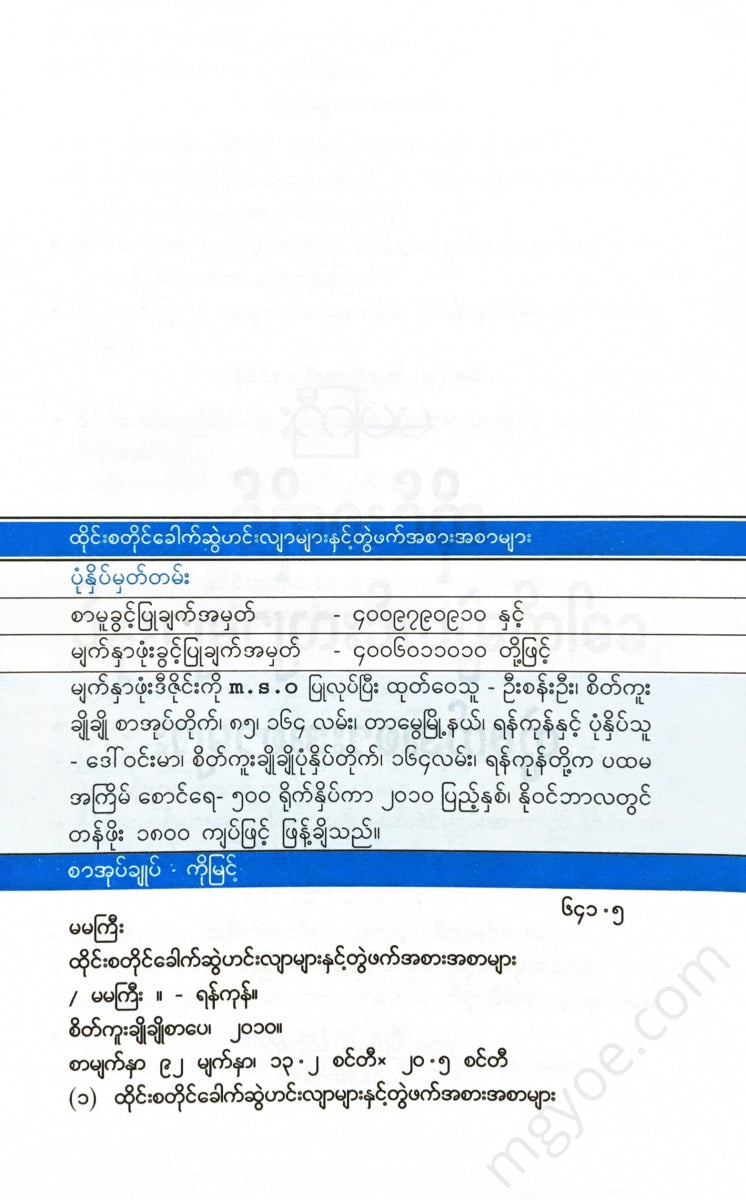 ထိုင်းစတိုင်ခေါက်ဆွဲဟင်းလျာများနှင့်တွဲဖက်အစားအစာများ
ပုံနှိပ်မှတ်တမ်း
စာမူခွင့်ပြုချက်အမှတ် - ၄၀၀၉၇၉၀၉၁၀ နှင့်
မျက်နှာဖုံးခွင့်ပြုချက်အမှတ် - ၄၀၀၆၀၁၁၀၁၀ တို့ဖြင့်
မျက်နှာဖုံးဒီဇိုင်းကို m.s.o ပြုလုပ်ပြီး ထုတ်ဝေသူ - ဦးစန်းဦး၊ စိတ်ကူး
ချိုချို စာအုပ်တိုက်၊ ၈၅၊ ၁၆၄ လမ်း၊ တာမွေမြို့နယ်၊ ရန်ကုန်နှင့် ပုံနှိပ်သူ
- ဒေါ်ဝင်းမာ၊ စိတ်ကူးချိုချိုပုံနှိပ်တိုက်၊ ၁၆၄လမ်း၊ ရန်ကုန်တို့က ပထမ
အကြိမ် စောင်ရေ- ၅၀၀ ရိုက်နှိပ်ကာ ၂၀၁၀ ပြည့်နှစ်၊ နိုဝင်ဘာလတွင်
တန်ဖိုး ၁၈၀၀ ကျပ်ဖြင့် ဖြန့်ချိသည်။
စာအုပ်ချုပ် - ကိုမြင့်
၆၄၁.၅
မမကြီး
ထိုင်းစတိုင်ခေါက်ဆွဲဟင်းလျာများနှင့်တွဲဖက်အစားအစာများ
/ မမကြီး ။ - ရန်ကုန်။
စိတ်ကူးချိုချိုစာပေ၊ ၂၀၁၀။
စာမျက်နှာ ၉၂ မျက်နှာ၊ ၁၃.၂ စင်တီ× ၂၀.၅ စင်တီ
(၁) ထိုင်းစတိုင်ခေါက်ဆွဲဟင်းလျာများနှင့်တွဲဖက်အစားအစာများ
mgyoe.com